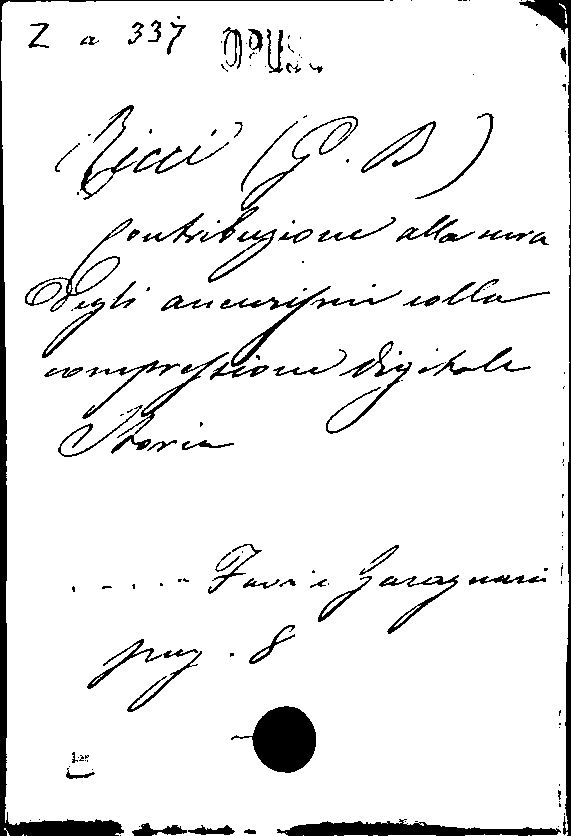 Z a 337 OPUSC.
Ricci (G. B)
Contribuzione alla cura
degli aneurismi colla
compressione digitale
Storia
..... Favi e Garagnani
pag. 8